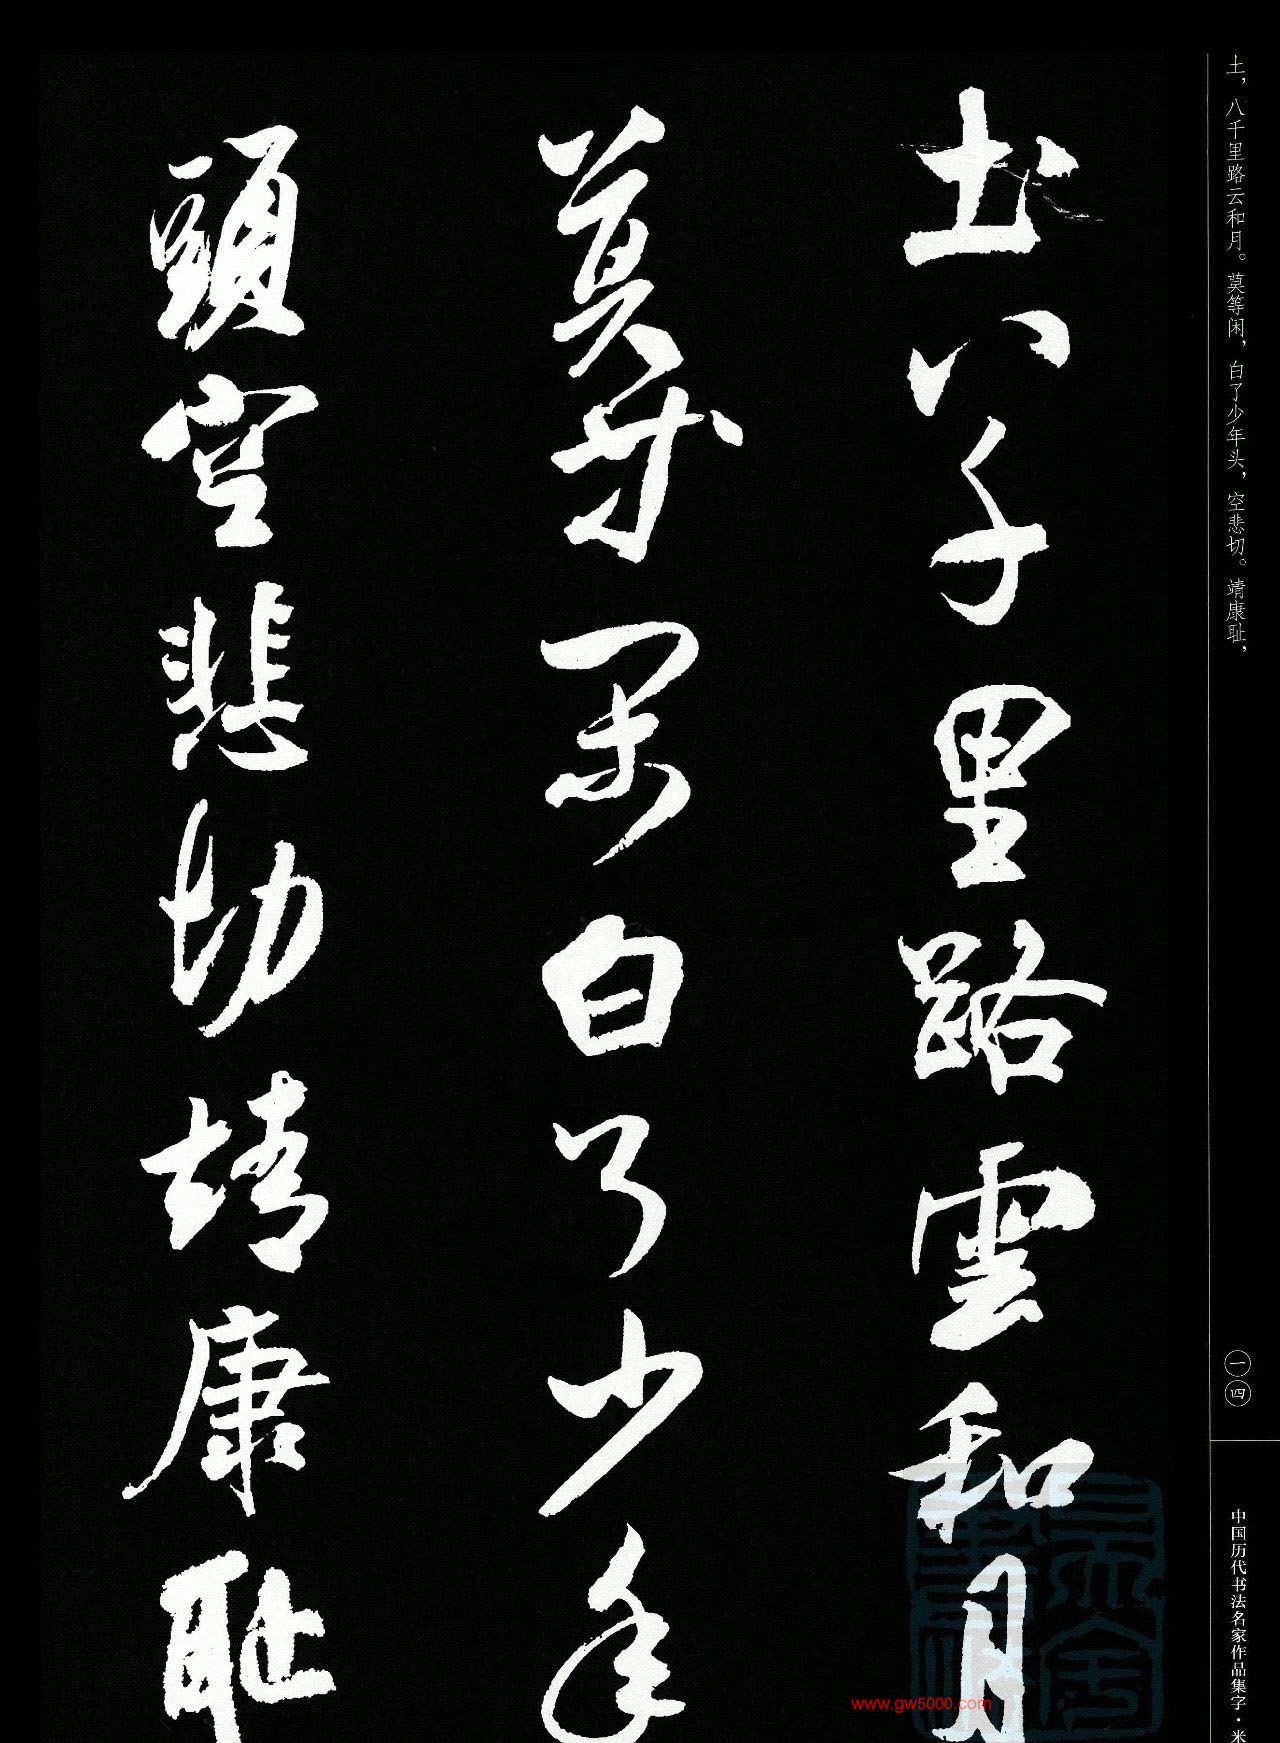 土，八千里路云和月。莫等闲，白了少年头，空悲切。靖康耻，
土八千里路雲和月
莫等閑白了少年
頭空悲切靖康耻
一四
中国历代书法名家作品集字·米
www.gw5000.com